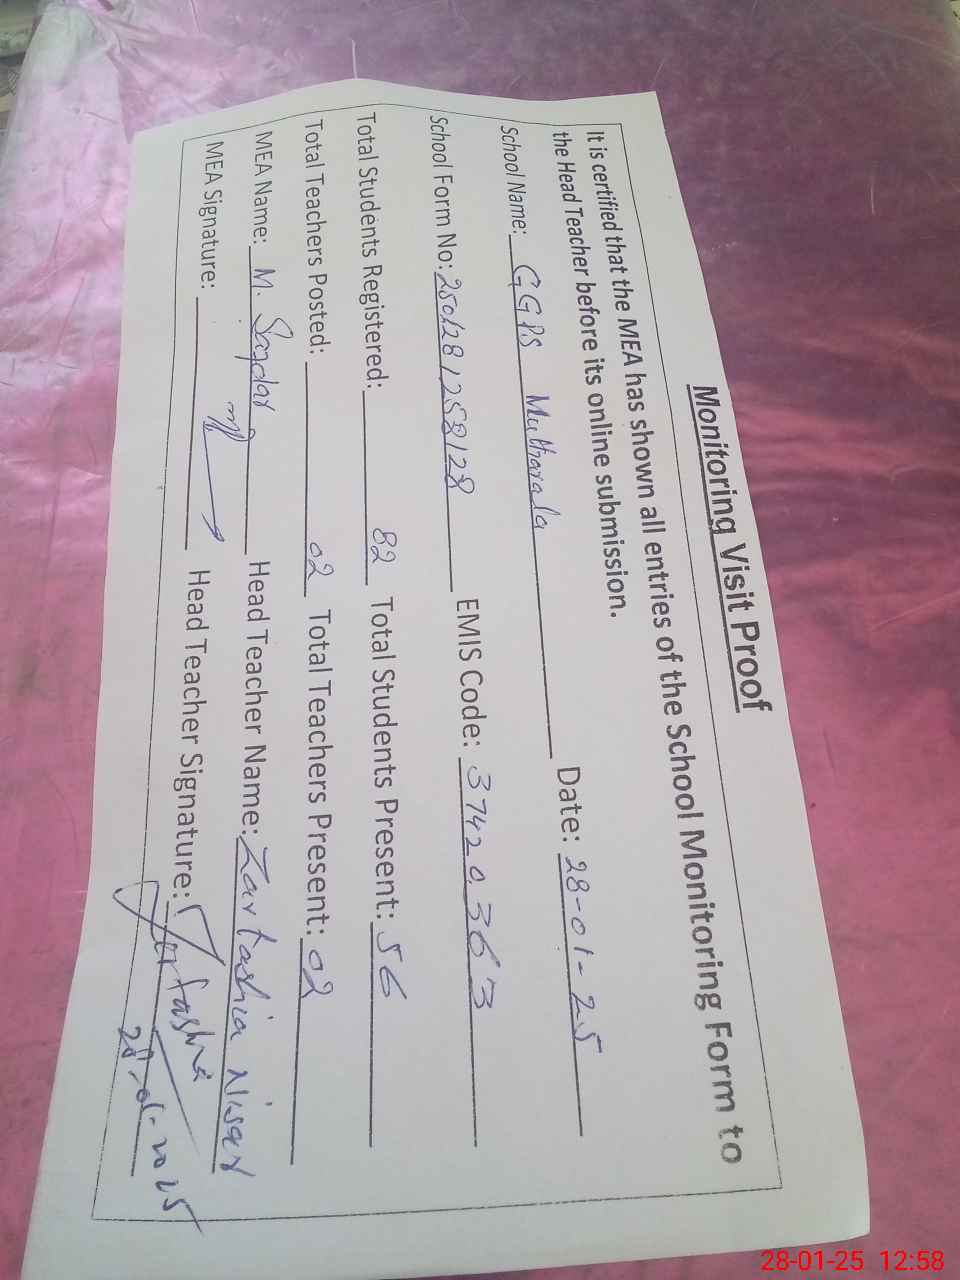 Monitoring Visit Proof
It is certified that the MEA has shown all entries of the School Monitoring Form to
the Head Teacher before its online submission.
School Name: GGPS Mutharala Date: 28-01-25
School Form No: 250128125812 EMIS Code: 37420363
Total Students Registered: 82 Total Students Present: 56
Total Teachers Posted: 02 Total Teachers Present: 02
MEA Name: M. Safdar Head Teacher Name: Zartashia Nisar
MEA Signature: Head Teacher Signature: Zartashia
28-01-2025
28-01-25 12:58